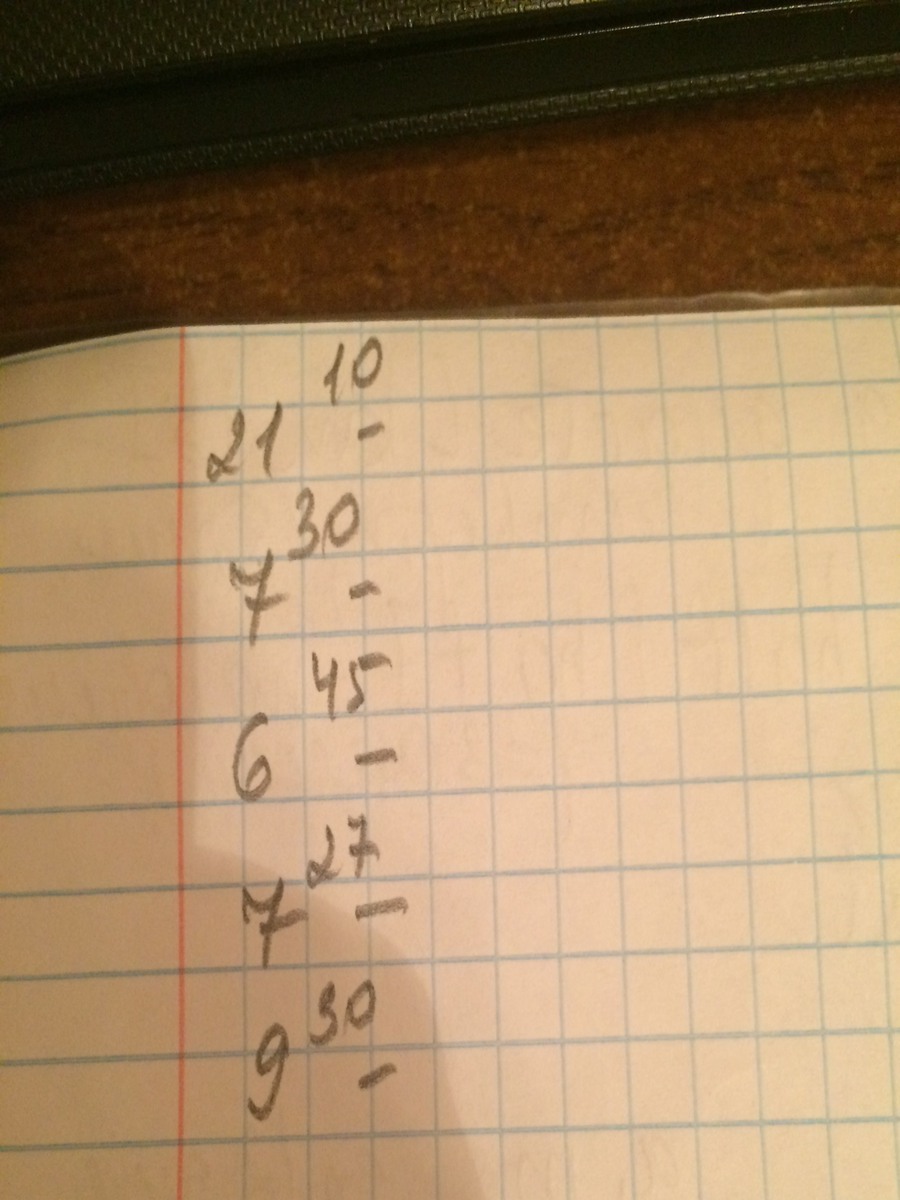 21 10 -
7 30 -
6 45 -
7 27 -
9 30 -